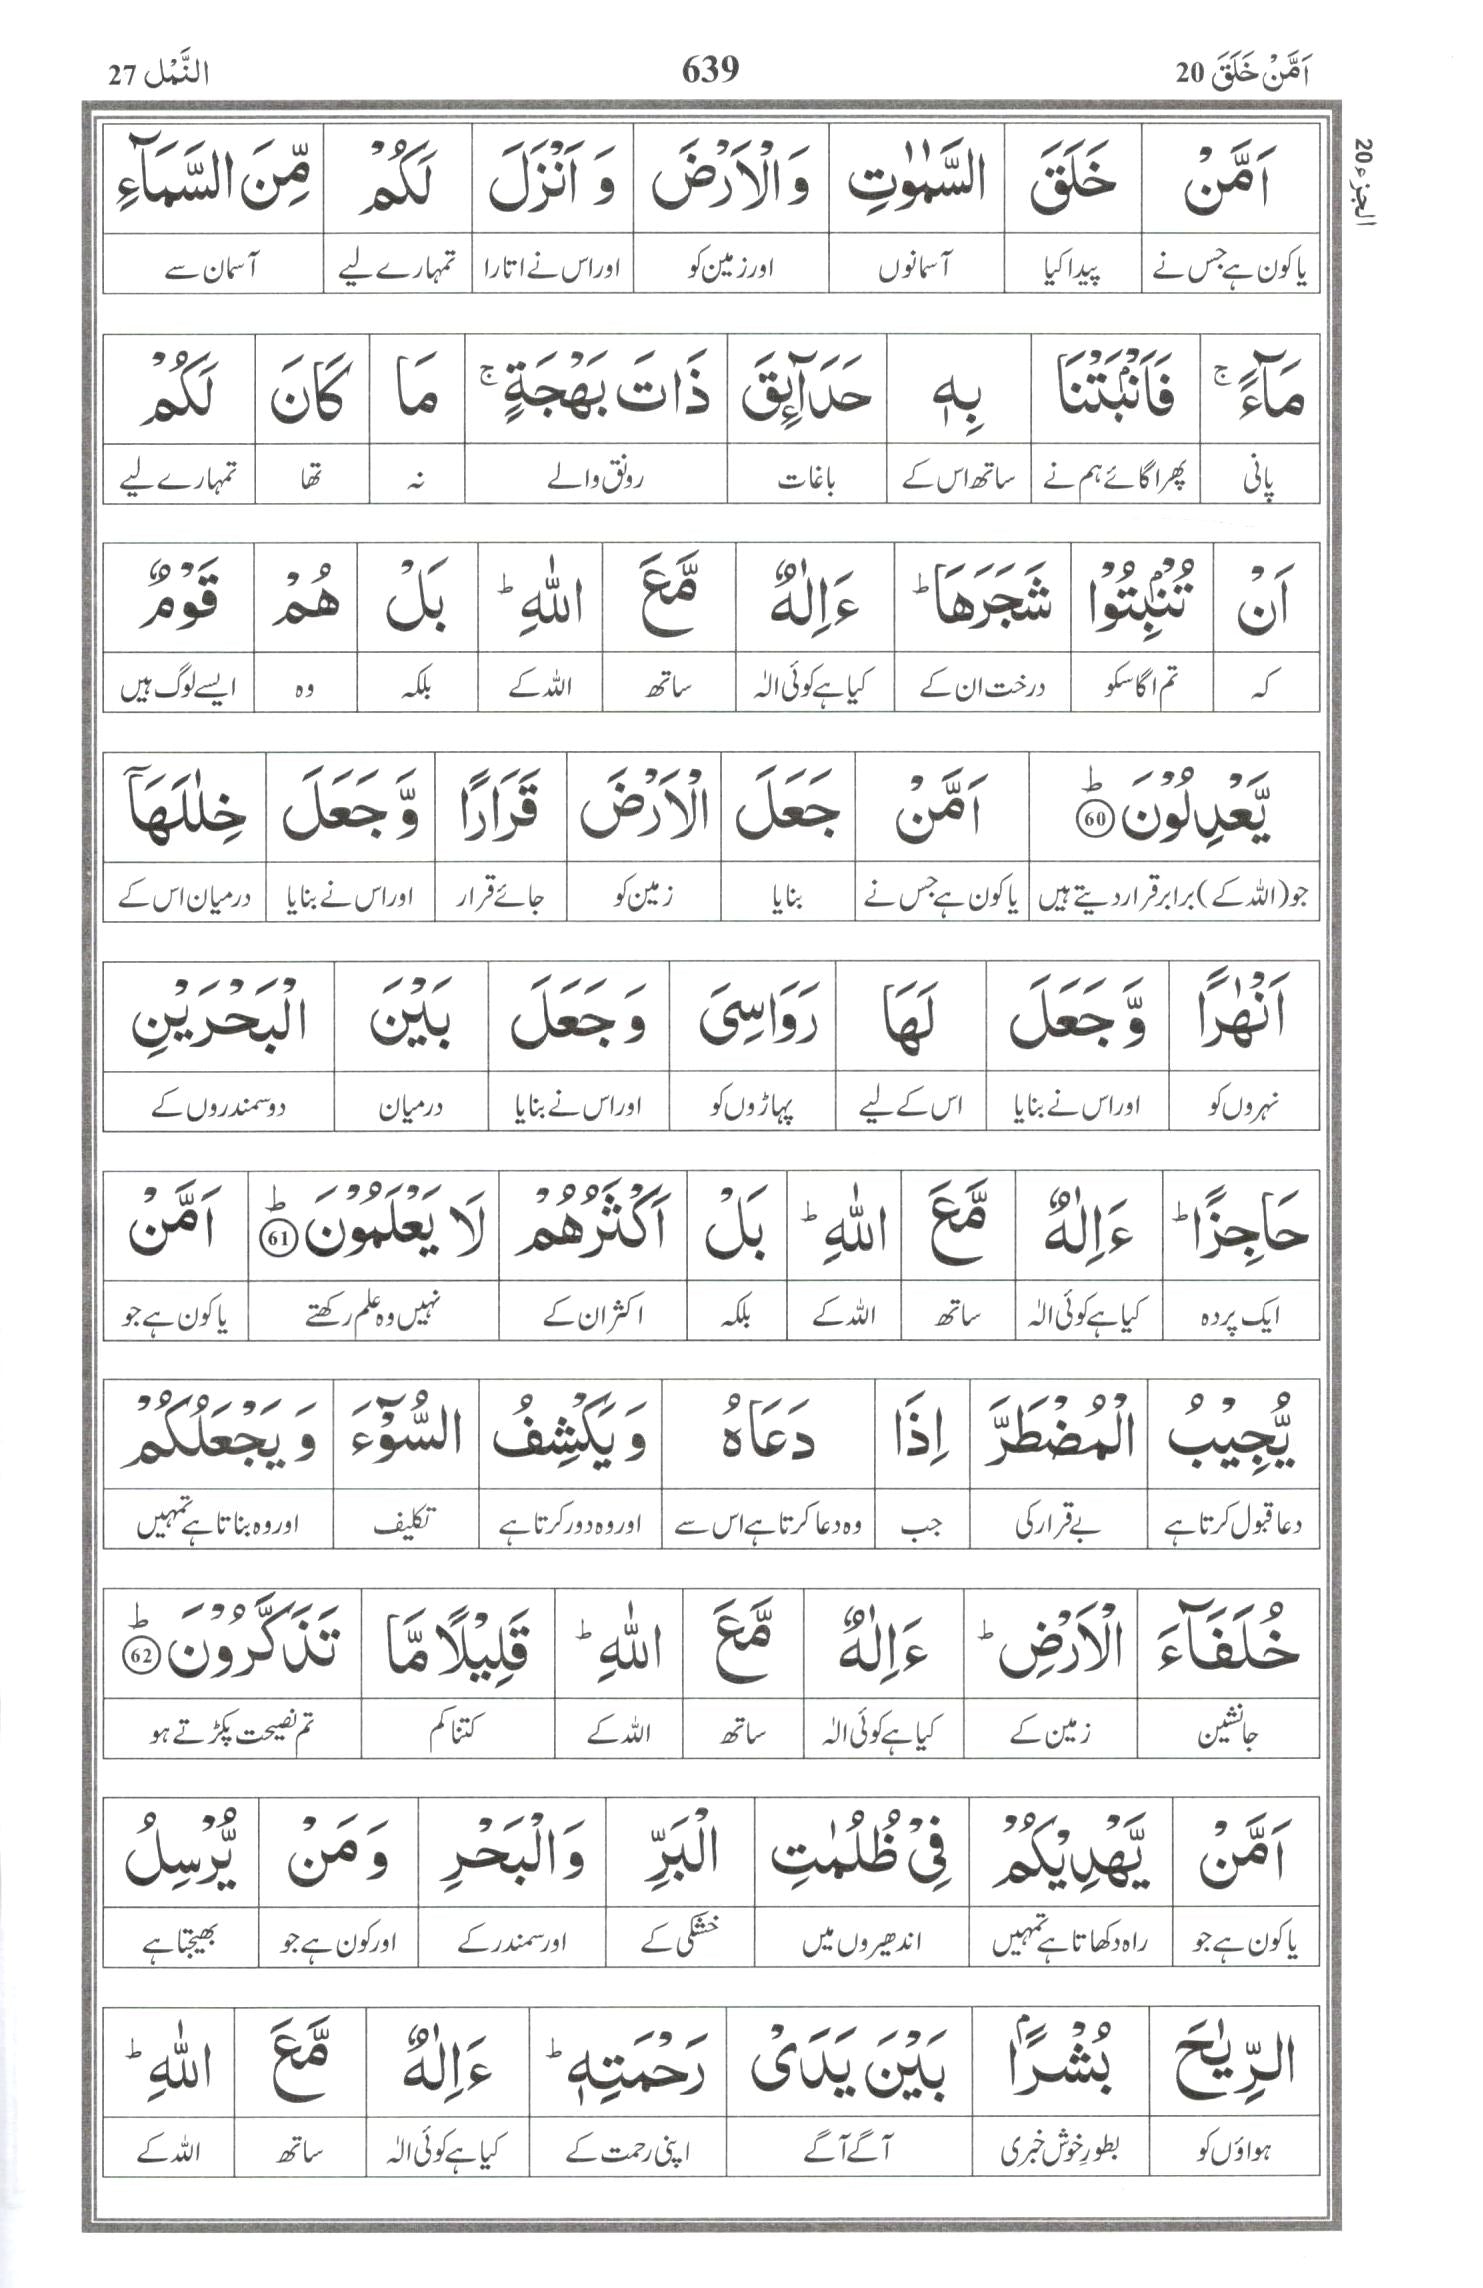 اَمَّنْ خَلَقَ 20 639 النَّمْل 27
الجزء 20
اَمَّنْ خَلَقَ السَّمٰوٰتِ وَالْاَرْضَ وَ اَنْزَلَ لَكُمْ مِّنَ السَّمَآءِ
یا کون ہے جس نے پیدا کیا آسمانوں اور زمین کو اور اس نے اتارا تمہارے لیے آسمان سے
مَآءً ۚ فَاَنْۢبَتْنَا بِهٖ حَدَآىِٕقَ ذَاتَ بَهْجَةٍ ۚ مَا كَانَ لَكُمْ
پانی پھر اگائے ہم نے ساتھ اس کے باغات رونق والے نہ تھا تمہارے لیے
اَنْ تُنْۢبِتُوْا شَجَرَهَا ؕ ءَاِلٰهٌ مَّعَ اللّٰهِ ؕ بَلْ هُمْ قَوْمٌ
کہ تم اگا سکو درخت ان کے کیا ہے کوئی الٰہ ساتھ اللہ کے بلکہ وہ ایسے لوگ ہیں
يَّعْدِلُوْنَ ؕ 60 اَمَّنْ جَعَلَ الْاَرْضَ قَرَارًا وَّ جَعَلَ خِلٰلَهَاۤ
جو (اللہ کے) برابر قرار دیتے ہیں یا کون ہے جس نے بنایا زمین کو جائے قرار اور اس نے بنایا درمیان اس کے
اَنْهٰرًا وَّ جَعَلَ لَهَا رَوَاسِیَ وَ جَعَلَ بَيْنَ الْبَحْرَيْنِ
نہروں کو اور اس نے بنایا اس کے لیے پہاڑوں کو اور اس نے بنایا درمیان دو سمندروں کے
حَاجِزًا ؕ ءَاِلٰهٌ مَّعَ اللّٰهِ ؕ بَلْ اَكْثَرُهُمْ لَا يَعْلَمُوْنَ ؕ 61 اَمَّنْ
ایک پردہ کیا ہے کوئی الٰہ ساتھ اللہ کے بلکہ اکثر ان کے نہیں وہ علم رکھتے یا کون ہے جو
يُّجِيْبُ الْمُضْطَرَّ اِذَا دَعَاهُ وَ يَكْشِفُ السُّوْٓءَ وَ يَجْعَلُكُمْ
دعا قبول کرتا ہے بے قرار کی جب وہ دعا کرتا ہے اس سے اور وہ دور کرتا ہے تکلیف اور وہ بناتا ہے تمہیں
خُلَفَآءَ الْاَرْضِ ؕ ءَاِلٰهٌ مَّعَ اللّٰهِ ؕ قَلِيْلًا مَّا تَذَكَّرُوْنَ ؕ 62
جانشین زمین کے کیا ہے کوئی الٰہ ساتھ اللہ کے کتنا کم تم نصیحت پکڑتے ہو
اَمَّنْ يَّهْدِيْكُمْ فِیْ ظُلُمٰتِ الْبَرِّ وَالْبَحْرِ وَ مَنْ يُّرْسِلُ
یا کون ہے جو راہ دکھاتا ہے تمہیں اندھیروں میں خشکی کے اور سمندر کے اور کون ہے جو بھیجتا ہے
الرِّيٰحَ بُشْرًۢا بَيْنَ يَدَیْ رَحْمَتِهٖ ؕ ءَاِلٰهٌ مَّعَ اللّٰهِ ؕ
ہواؤں کو بطور خوش خبری آگے آگے اپنی رحمت کے کیا ہے کوئی الٰہ ساتھ اللہ کے